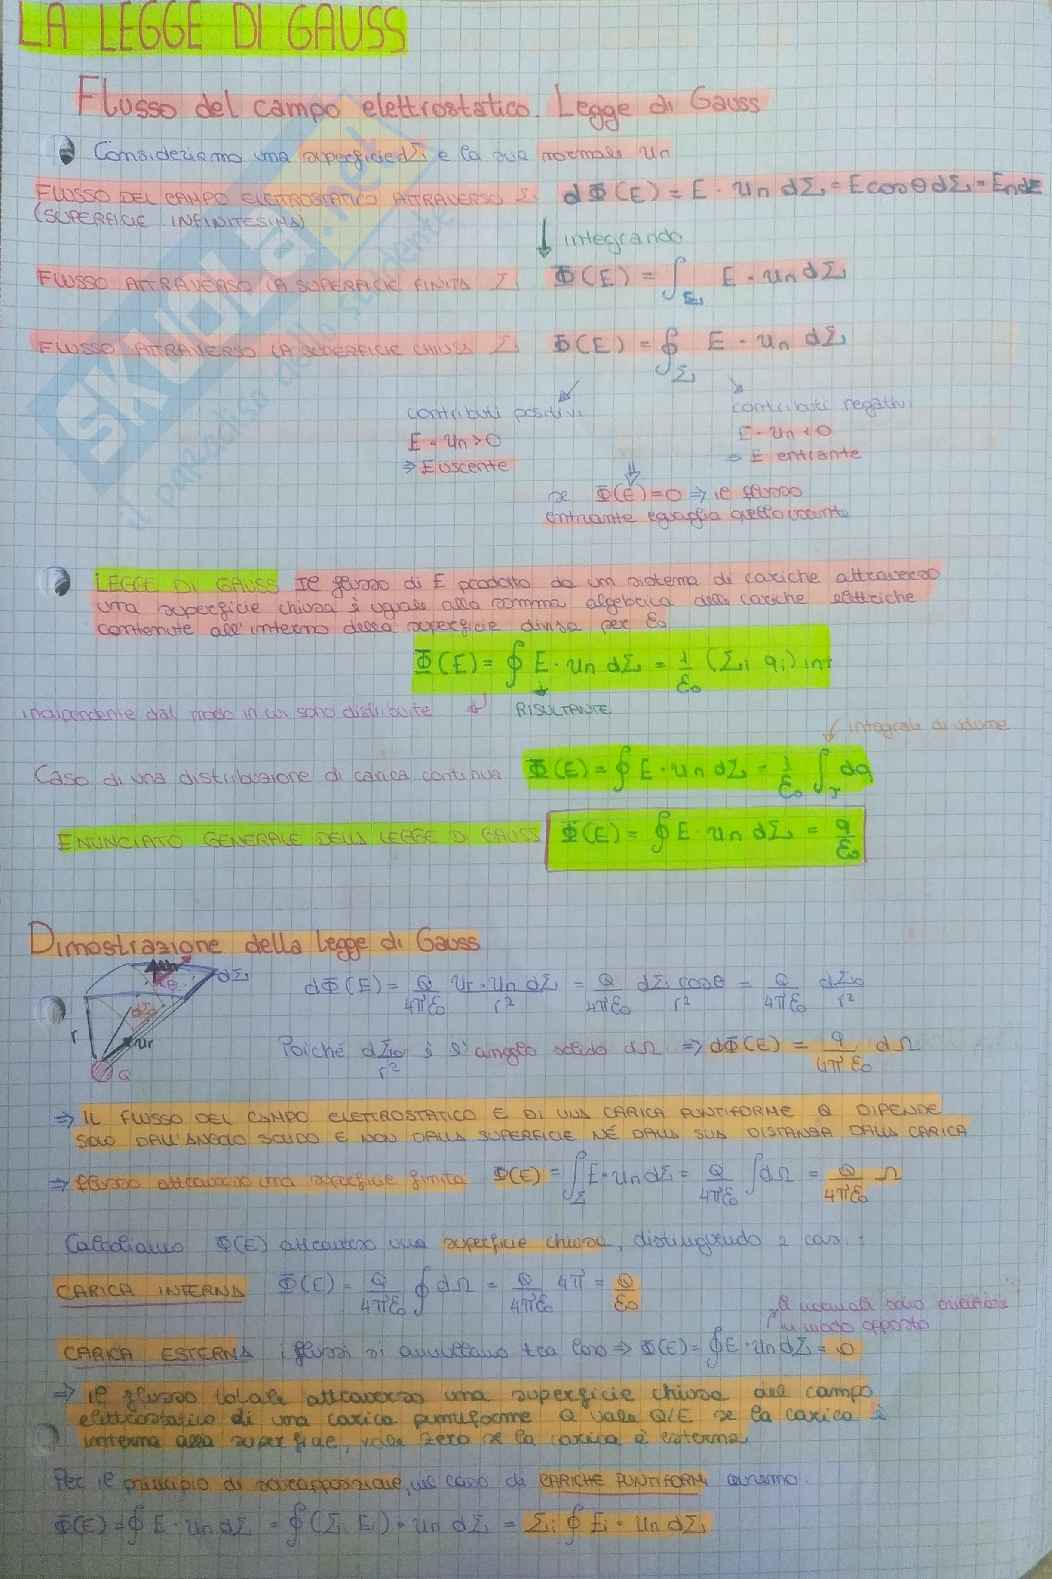 LA LEGGE DI GAUSS
Flusso del campo elettrostatico. Legge di Gauss
Consideriamo una superficie dΣ e la sua normale un
FLUSSO DEL CAMPO ELETTROSTATICO ATTRAVERSO Σ dΦ(E) = E · un dΣ = E cosθ dΣ = En dΣ
(SUPERFICIE INFINITESIMA)
↓ integrando
FLUSSO ATTRAVERSO LA SUPERFICIE FINITA Σ Φ(E) = ∫Σ E · un dΣ
FLUSSO ATTRAVERSO LA SUPERFICIE CHIUSA Σ Φ(E) = ∮Σ E · un dΣ
contributi positivi contributi negativi
E · un > 0 E · un < 0
⇒ E uscente ⇒ E entrante
se Φ(E) = 0 ⇒ il flusso
entrante eguaglia quello uscente
LEGGE DI GAUSS Il flusso di E prodotto da un sistema di cariche attraverso
una superficie chiusa è uguale alla somma algebrica delle cariche elettriche
contenute all'interno della superficie divisa per ε0
Φ(E) = ∮ E · un dΣ = 1/ε0 (Σi qi) int
indipendente dal modo in cui sono distribuite RISULTANTE
integrale di volume
Caso di una distribuzione di carica continua Φ(E) = ∮ E · un dΣ = 1/ε0 ∫τ dq
ENUNCIATO GENERALE DELLA LEGGE DI GAUSS Φ(E) = ∮ E · un dΣ = q/ε0
Dimostrazione della Legge di Gauss
un θ dΣ
dΣ0
r ur
Q
dΦ(E) = Q/4πε0 ur · un dΣ/r² = Q/4πε0 dΣ cosθ/r² = Q/4πε0 dΣ0/r²
Poiché dΣ0/r² è l'angolo solido dΩ ⇒ dΦ(E) = q/4πε0 dΩ
⇒ IL FLUSSO DEL CAMPO ELETTROSTATICO E DI UNA CARICA PUNTIFORME Q DIPENDE
SOLO DALL'ANGOLO SOLIDO E NON DALLA SUPERFICIE NÉ DALLA SUA DISTANZA DALLA CARICA
⇒ flusso attraverso una superficie finita Φ(E) = ∫Σ E · un dΣ = Q/4πε0 ∫dΩ = Q/4πε0 Ω
Calcoliamo Φ(E) attraverso una superficie chiusa, distinguendo 2 casi:
CARICA INTERNA Φ(E) = Q/4πε0 ∮ dΩ = Q/4πε0 4π = Q/ε0
le normali sono orientate
in modo opposto
CARICA ESTERNA i flussi si annullano tra loro ⇒ Φ(E) = ∮ E · un dΣ = 0
⇒ il flusso totale attraverso una superficie chiusa del campo
elettrostatico di una carica puntiforme Q vale Q/E se la carica è
interna alla superficie, vale zero se la carica è esterna
Per il principio di sovrapposizione, nel caso di CARICHE PUNTIFORMI avremo
Φ(E) = ∮ E · un dΣ = ∮ (Σi Ei) · un dΣ = Σi ∮ Ei · un dΣ
SKUOLA.net
il paradiso dello studente